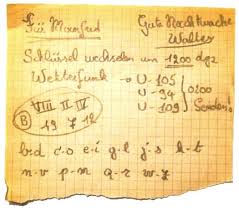 Für Manfred
Gute Nachtwache
Walter
Schlüssel wechseln um 1200 dgz
Wetterfunk → U-105
U-94
U-109
0100
Senden!
VIII II IV
B 19 7 12
b-d c-o e-i g-l j-s k-t
n-v p-m q-r w-z